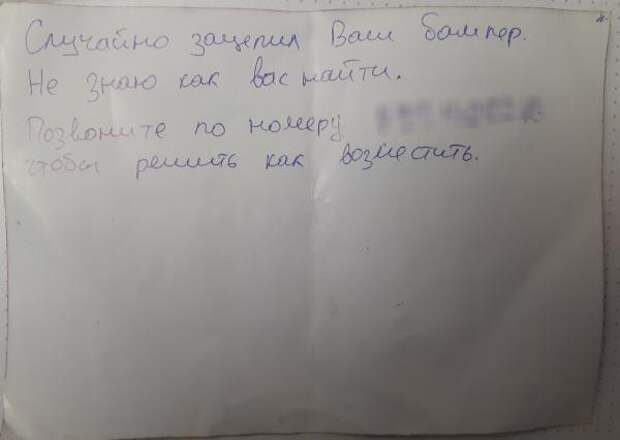 Случайно зацепил Ваш бампер.
Не знаю как вас найти.
Позвоните по номеру
чтобы решить как возместить.